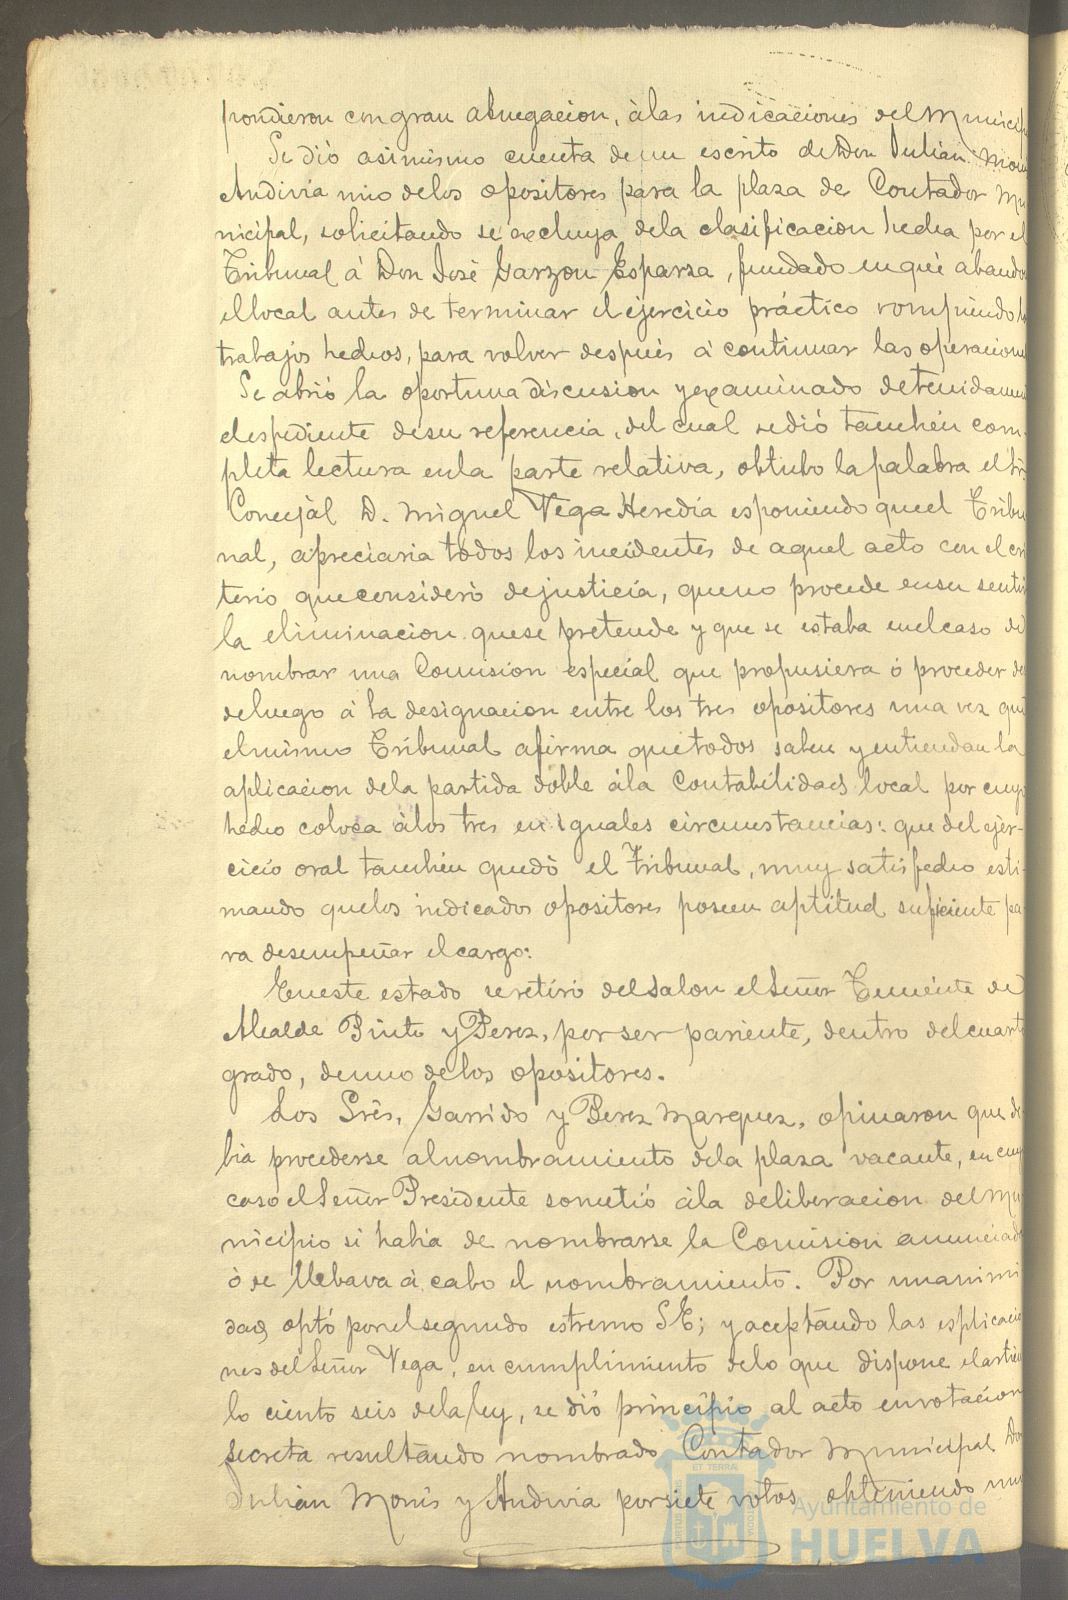 pondieron con gran abnegacion, à las indicaciones del Munici
Se dió asimismo cuenta de un escrito de Don Julian Mon
Andivia uno delos opositores para la plaza de Contador Mu
nicipal, solicitando se excluya dela clasificacion hecha por el
Tribunal á Don José Garzon Esparza, fundado en que abando
el local antes de terminar el ejercicio práctico rompiendo l
trabajos hechos, para volver despues á continuar las operacione
Se abrió la oportuna discusion y examinado detenidamen
el espediente desu referencia, del cual sedió tambien com-
pleta lectura enla parte relativa, obtubo la palabra el Sr.
Concejal D. Miguel Vega Heredia esponiendo queel Tribu
nal, apreciaria todos los incidentes de aquel acto con el cri
terio que consideró dejusticia, queno procede ensu sentir
la eliminacion quese pretende y que se estaba enelcaso de
nombrar una Comision especial que propusiera ó proceder des
deluego á la designacion entre los tres opositores una vez que
elmismo Tribunal afirma quetodos saben y entienden la
aplicacion dela partida doble àla Contabilidad local por cuyo
hecho coloca àlos tres en iguales circunstancias: que del ejer-
cicio oral tambien quedó el Tribunal, muy satisfecho esti-
mando quelos indicados opositores poseen aptitud suficiente pa-
ra desempeñar el cargo:
Eneste estado seretiró del Salon el Señor Teniente de
Alcalde Pinto y Perez, por ser pariente, dentro del cuarto
grado, deuno delos opositores.
Los Srés. Garrido y Perez Marquez, opinaron que de
bia procederse alnombramiento dela plaza vacante, en cuyo
caso el Señor Presidente sometió àla deliberacion del Mu
nicipio si habia de nombrarse la Comision anunciada
ò se llebava à cabo el nombramiento. Por unanimi
dad optó porel segundo estremo S.E; y aceptando las esplicacio
nes del Señor Vega, en cumplimiento delo que dispone el artícu
lo ciento seis dela ley, se dió principio al acto en votacion
secreta resultando nombrado Contador Municipal Don
Julian Monis y Andivia por siete votos, obteniendo uno
ET TERRAE
Ayuntamiento de
HUELVA